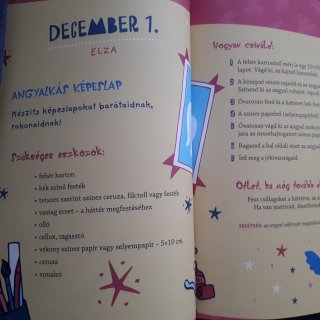 DECEMBER 1.
ELZA
ANGYALKÁS KÉPESLAP
Készíts képeslapokat barátaidnak,
rokonaidnak!
Szükséges eszközök:
• fehér karton
• kék színű festék
• tetszés szerint színes ceruza, filctoll vagy festék
• vastag ecset – a háttér megfestéséhez
• olló
• cellux, ragasztó
• vékony színes papír vagy selyempapír – 5×10 cm
• ceruza
• vonalzó
Hogyan csináld:
1 A fehér kartonból mérj le egy
lapot. Vágd ki, és hajtsd
2 A középső részre rajzold
fessed ki az angyal ruháját,
3 Óvatosan fesd ki a hátteret kék
4 A színes papírból (selyempapírból)
5 Óvatosan vágd ki az angyal
jára az összehajtogatott színes
6 Ragaszd a bal oldali részt az
7 Írd meg a jókívánságaid.
Ötlet, ha még tovább
Fess csillagokat a háttérre, az
Ha van matricád, díszítheted
az angyal sablonját megtalálod